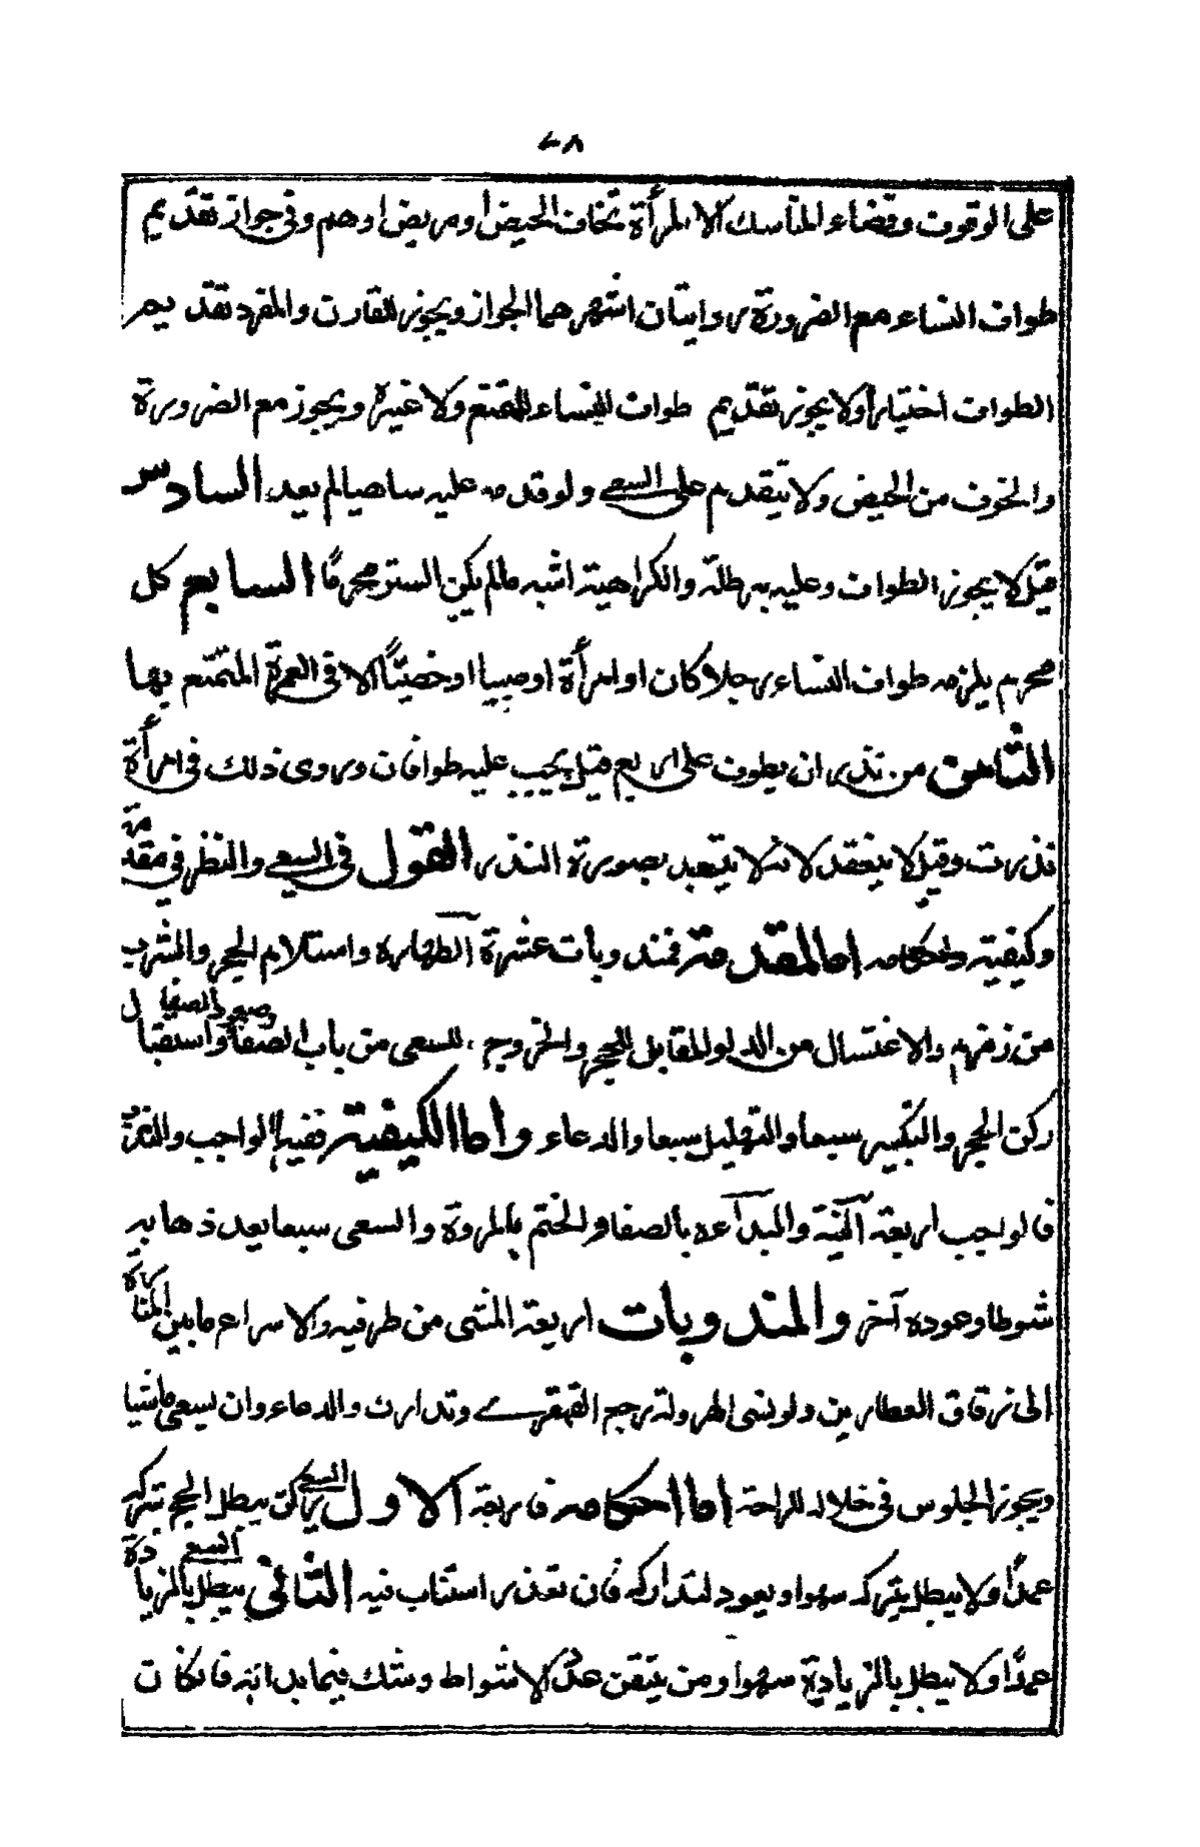 ٧٨
على الوقوف وقضاء المناسك الا لمرأة تخاف الحيض او مريض او هم وفى جواز تقديم
طواف النساء مع الضرورة روايتان اشهرهما الجواز ويجوز للقارن والمفرد تقديم
الطواف اختيارا ولا يجوز تقديم طواف النساء للمتمتع ولا غيره ويجوز مع الضرورة
والخوف من الحيض ولا يتقدم على السعى ولو قدمه عليه ساهيا لم يعد السادس
قيل لا يجوز الطواف وعليه برطلة والكراهية اشبه مالم يكن الستر محرمًا السابع كل
محرم يلزمه طواف النساء رجلا كان او امرأة او صبيا او خصيًّا الا فى العمرة المتمتع بها
الثامن من نذر ان يطوف على اربع قيل يجب عليه طوافان وروى ذلك فى امرأة
نذرت وقيل لا ينعقد لانه لا يتعبد بصورة النذر القول فى السعى والنظر فى مقدمته
وكيفيته واحكامه اما المقدمة فمندوبات عشرة الطهارة واستلام الحجر والشرب
من زمزم والاغتسال من الدلو المقابل للحجر والخروج للسعى من باب الصفا وصعود الصفا واستقبال
ركن الحجر والتكبير سبعا والتهليل سبعا والدعاء واما الكيفية ففيها الواجب والندب
فالواجب اربعة النية والبداءة بالصفا والختم بالمروة والسعى سبعا يعد ذهابه
شوطا وعوده آخر والمندوبات اربعة المشى من طرفيه والاسراع ما بين المنارة
الى زقاق العطارين ولو نسى الهرولة رجع القهقرى وتدارك والدعاء وان يسعى ماشيا
ويجوز الجلوس فى خلاله للراحة اما احكامه فاربعة الاول السعى ركن يبطل الحج بتركه
عمدًا ولا يبطل بتركه سهوا ويعود لتداركه فان تعذر استناب فيه الثانى يبطل السعى بالزيادة
عمدًا ولا يبطل بالزيادة سهوا ومن يتقن عدد الاشواط وشك فيما بدا به فان كان